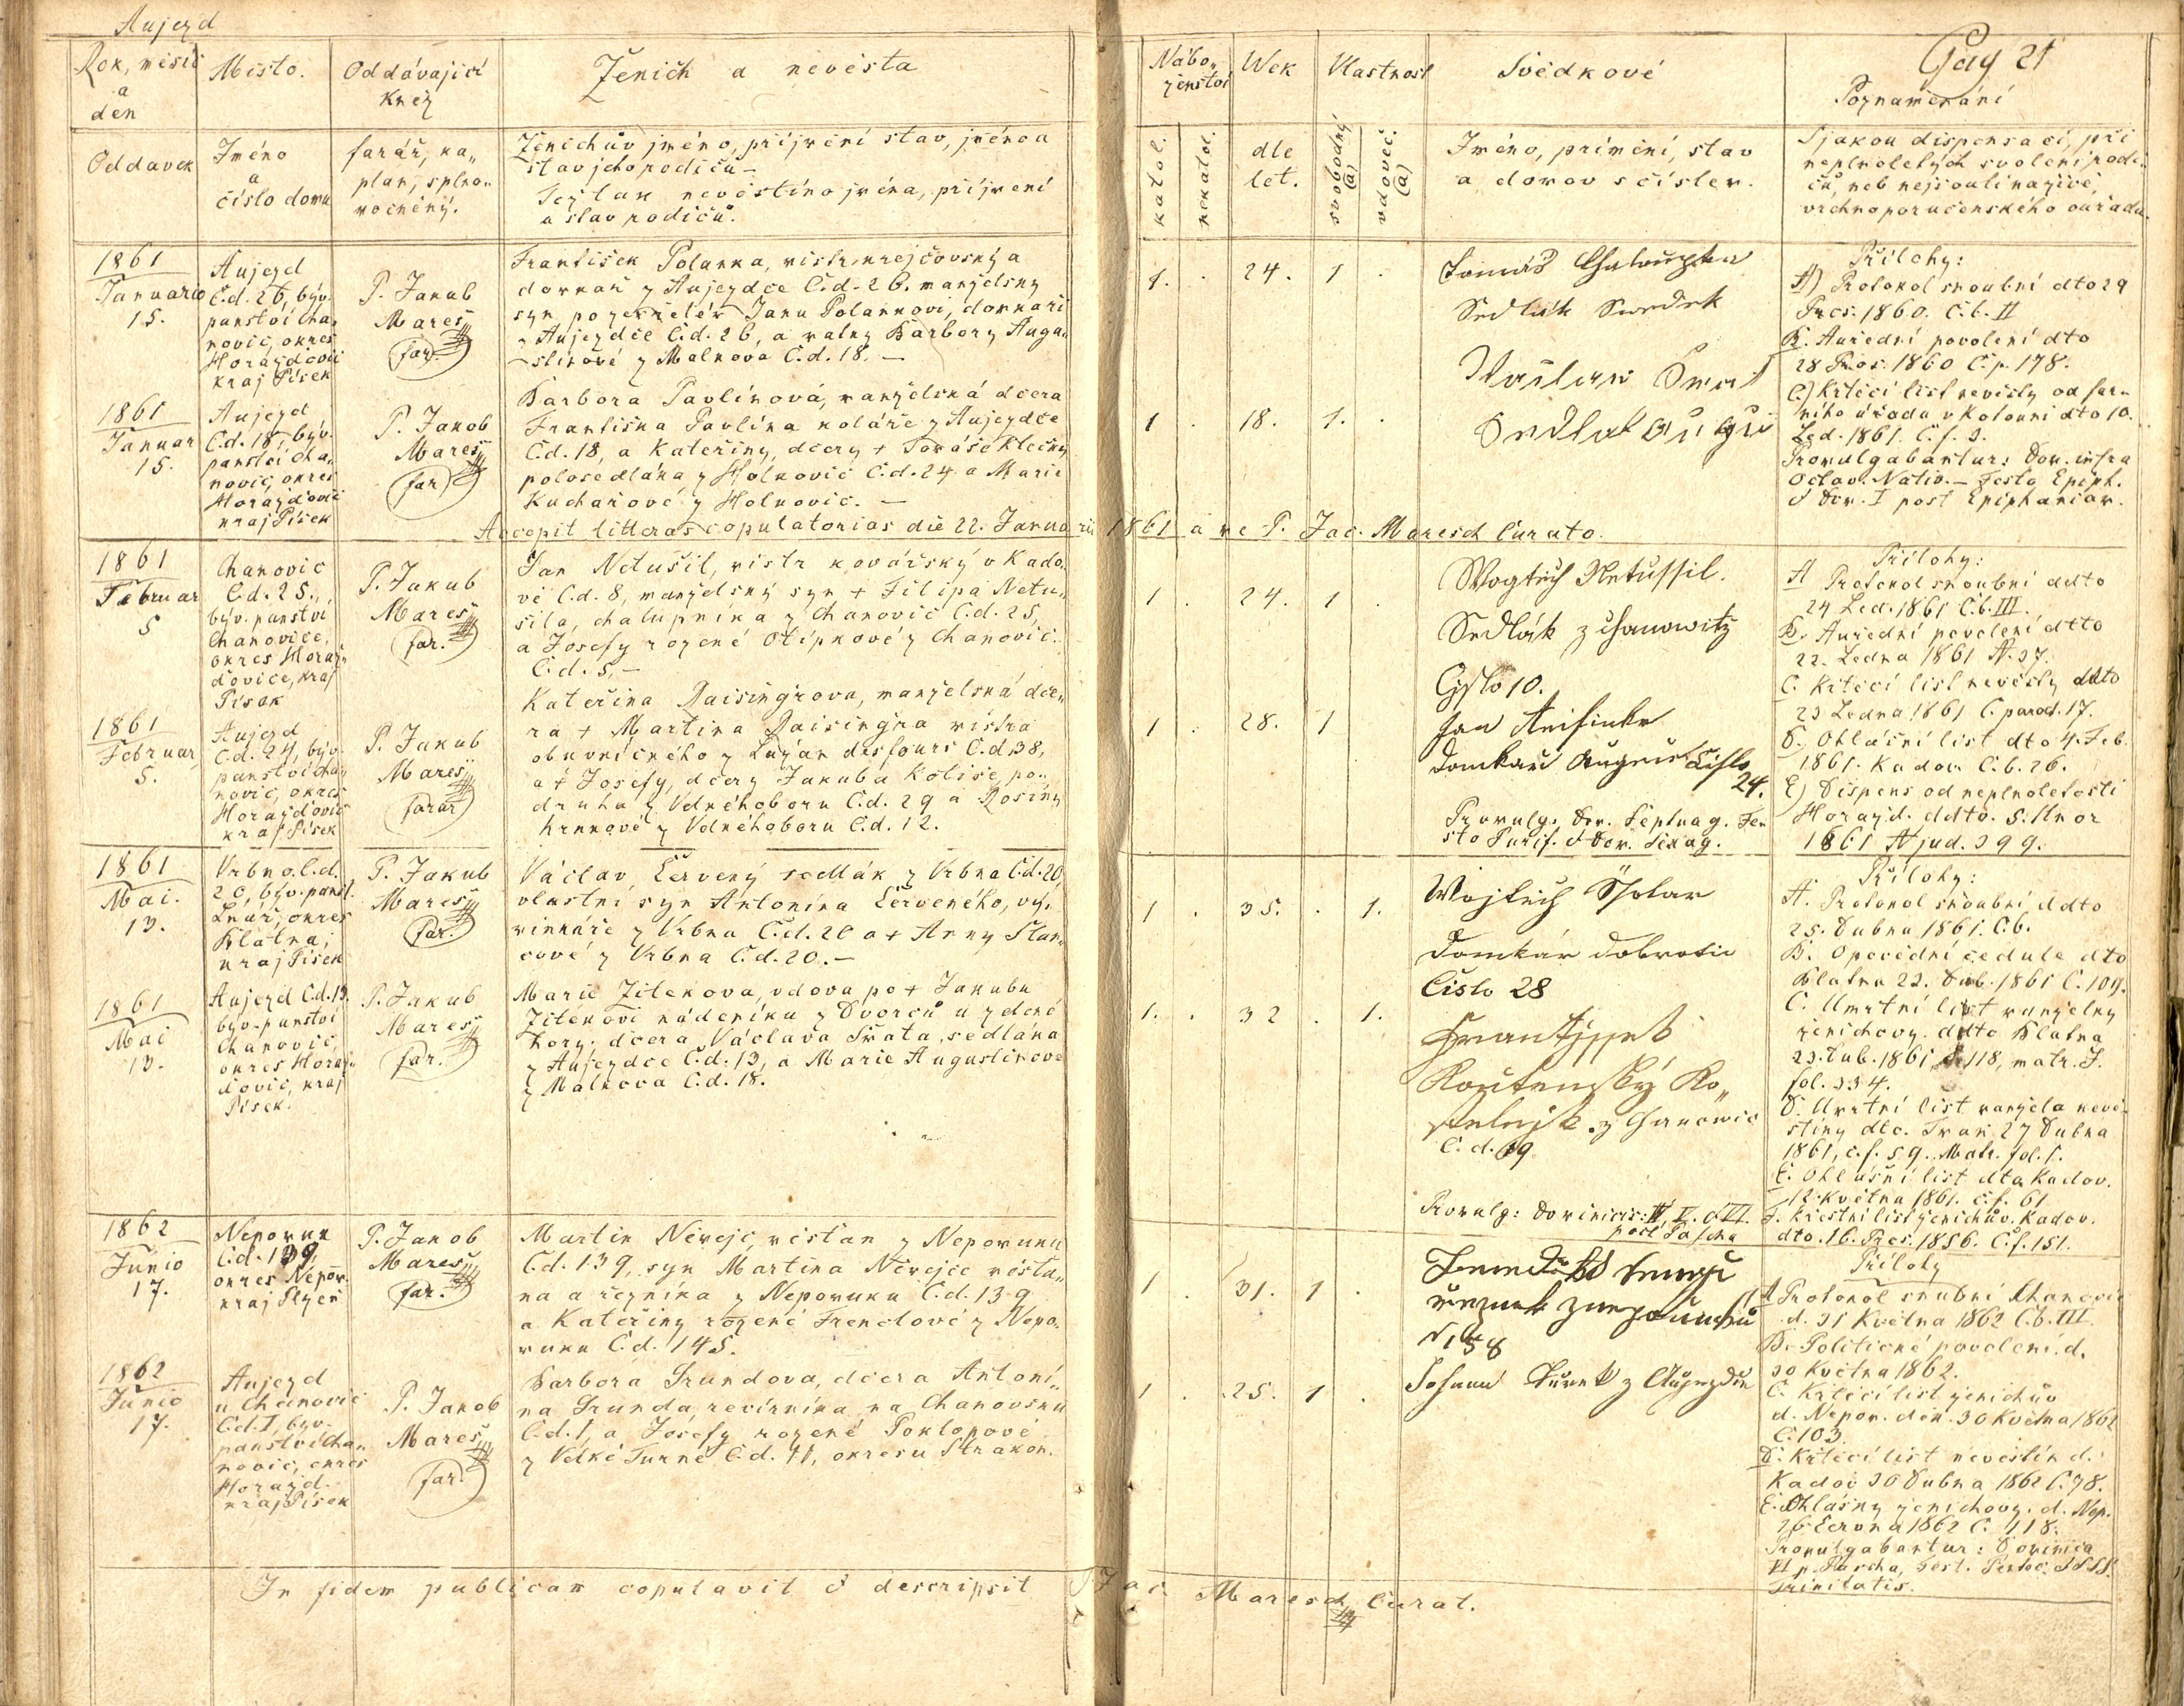 Aujezd
Rok, měsíc
a
den
Místo.
Oddávající
kněz
Ženich a nevěsta
Nábo„
ženství
Wěk
Vlastnost
Svědkové
Pag 21
Poznamenání
Oddavek
Jméno
a
číslo domu
farář, ka„
plan, splno„
mocněný.
Ženichův jméno, příjmení stav, jméno a
stav jeho rodičů –
Též tak nevěstíno jména, příjmení
a stav rodičů.
katol.
nekatol.
dle
let.
svobodný
(a)
vdovec.
(a)
Jméno, přímění, stav
a domov s číslem.
S jakou dispensací, při
neplnoletých svolení rodi„
čů, neb nejsouli naživě,
vrchnoporučenského ouřadu.
1861
Januario
15.
Aujezd
Č.d. 26, býv.
panství Cha„
novic, okres
Horažďovic
kraj Písek
P. Jakub
Mareš
far.
František Polanka, mistr krejčovský a
domkař z Aujezdce Č.d. 26. manželský
syn po zemřelém Janu Polankovi, domkaři
z Aujezdce Č.d. 26, a matky Barbory Augu„
stinové z Malkova Č.d. 18. –
1. . 24. 1 .
Tomáš Chaloupka
Sedlák Swedek
Přílohy:
A) Protokol snoubní dto 29
Pros. 1860. Č.b. II
B. Auřední povolení dto
28 Pros. 1860 Č.p. 178.
C.) Křtěcí list nevěsty od far„
ního úřadu v Kotouni dto 10.
Led. 1861. Č.f. 3.
Promulgabantur: Dom. infra
Octav. Nativ. – Festo Epiph.
& Dom. I post Epiphaniam.
1861
Januar
15.
Aujezd
Č.d. 18, býv.
panství Cha„
novic, okres
Horažďovic
kraj Písek
P. Jakob
Mareš
far
Barbora Pavlínová, manželská dcera
Františka Pavlína koláře z Aujezdce
Č.d. 18, a Kateřiny, dcery + Tomáše Klečky
polosedláka z Holkovic Č.d. 24 a Marie
Kuchařové z Holkovic. –
1 . 18. 1. .
Accepit litteras copulatorias die 22. Januarii 1861 a me P. Jac. Maresch Curato.
1861
Februar
5
Chanovic
Č.d. 25.,
býv. panství
Chanovice,
okres Horaž„
ďovice, kraj
Písek
P. Jakub
Mareš
far.
Jan Netušil, mistr kovářský v Kado„
vě Č.d. 8, manželský syn + Filipa Netu„
šila, chalupníka z Chanovic Č.d. 25,
a Josefy rozené Otípkové z Chanovic.
Č.d. 5. –
1 . 24. 1 .
Wogtěch Netussil.
Sedlák z Chanowitz
Cyslo 10.
Přílohy:
A Protokol snoubní ddto
24 Led. 1861 Č.b. III.
B. Auřední povolení dtto
22. Ledna 1861 N. 37.
C. Křtěcí list nevěsty ddto
23 Ledna 1861 Č. paroch. 17.
D. Ohlášní list dto 4. Feb.
1861. Kadov. Č.b. 26.
E) Dispens od neplnoletosti
Horažd. ddto. 5. Únor
1861 N jud. 399.
1861
Februar
5.
Aujezd
Č.d. 24, býv.
panství Cha„
novic, okres
Horažďovic
kraj Písek
P. Jakub
Mareš
farář
Kateřina Raisingrova, manželská dce„
ra + Martina Raisingra mistra
obuvnického z Lužan desfours Č.d. 38,
a + Josefy, dcery Jakuba Kotise, po„
druha z Velkéhoboru Č.d. 29 a Rosiny
Krnkové z Velkéhoboru Č.d. 12.
1 . 28. 1
Domkař Číslo
24.
Promulg. Dom. Septuag. Fe„
sto Purif. & Dom. Sexag.
1861
Mai.
13.
Vrbno Č.d.
20, býv. panst.
Lnář, okres
Blatna,
kraj Písek
P. Jakub
Mareš
far.
Václav Červený sedlák z Vrbna Č.d. 20,
vlastní syn Antonína Červeného, vý„
minkáře z Vrbna Č.d. 20 a + Anny Slan„
cové z Vrbna Č.d. 20. –
1 . 35. . 1.
Wojtěch
Domkár Dobrotic
Čislo 28
Přílohy:
A. Protokol snoubní ddto
25. Dubna 1861. Č.b.
B. Opovědní cedule dto
Blatna 22. Dub. 1861 Č. 109.
C. Úmrtní list manželky
ženichovy. ddto Blatna
23. Dub. 1861, N. 118, matr. I.
fol. 334.
D. Úmrtní list manžela nevě„
stiny dto. 27 Dubna
1861, č.f. 59. Matr. fol. 1.
E. Ohlášní list dto Kadov.
12. května 1861. č.f. 61
F. Křestní list ženichův. Kadov.
dto. 16. Pros. 1856. Č.f. 151.
1861
Mai
13.
Aujezd Č.d. 13.
býv. panství
Chanovic,
okres Horaž„
ďovic, kraj
Písek.
P. Jakub
Mareš
far.
Marie Žitekova, vdova po + Jakubu
Žitekovi nádeníku z Dvorců u Zdené
hory. dcera Václava Šmata, sedláka
z Aujezdce Č.d. 13, a Marie Augustinové
z Malkova Č.d. 18.
1. . 32 . 1.
Frantissek
Koutenský Ko„
stelnjk z Chanowic
Č.d. 19
Promulg: Dominicis: IV V. & VI.
post Pascha
1862
Junio
17.
Nepomuk
Č.d. 139,
okres Nepom.
kraj Plzeň
P. Jakob
Mareš
far.
Martin Němejc, měštan z Nepomuku
Č.d. 139, syn Martina Němejce měšta„
na a řezníka z Nepomuku Č.d. 139
a Kateřiny rozené Frendlové z Nepo„
muku Č.d. 145.
1 . 31. 1 .
Přílohy
A Protokol snubní Chanovic
d. 31 Května 1862 Č.b. III.
B. Politické povolení. d.
30 května 1862.
C. Křtěcí list ženichův
d. Nepom. den. 30 května 1862
Č. 103.
D. Křtěcí list nevěstin d.
Kadov 30 Dubna 1862 Č. 78.
E. Ohlášky ženichovy. d. Nep.
16 Června 1862 Č. 118.
Promulgabantur: Dominica
VI p. Pascha, Fest. Pentec. & SS.
Trinitatis.
1862
Junio
17.
Aujezd
u Chanovic
Č.d. 1, býv.
panství Cha„
novic, okres
Horažd.
kraj Písek
P. Jakob
Mareš
far.
Barbora Grundova, dcera Antoní„
na Grunda, revírníka na Chanovsku
Č.d. 1, a Josefy rozené Poklopové
z Velké Turné Č.d. 11, okresu Strakon.
1 . 25. 1 .
Johann Turek z Augezdce
In fidem publicam copulavit & descripsit P Jac. Maresch Curat.